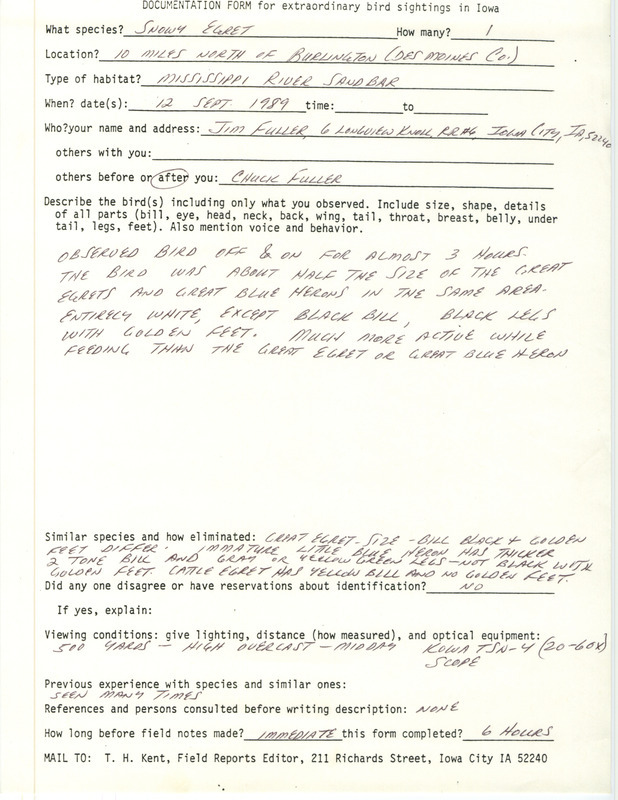 DOCUMENTATION FORM for extraordinary bird sightings in Iowa
What species? SNOWY EGRET How many? 1
Location? 10 MILES NORTH OF BURLINGTON (DES MOINES CO.)
Type of habitat? MISSISSIPPI RIVER SANDBAR
When? date(s): 12 SEPT. 1989 time: to
Who?your name and address: JIM FULLER, 6 LONGVIEW KNOLL RR#6 IOWA CITY, IA, 52240
others with you:
others before or after you: CHUCK FULLER
Describe the bird(s) including only what you observed. Include size, shape, details
of all parts (bill, eye, head, neck, back, wing, tail, throat, breast, belly, under
tail, legs, feet). Also mention voice and behavior.
OBSERVED BIRD OFF & ON FOR ALMOST 3 HOURS.
THE BIRD WAS ABOUT HALF THE SIZE OF THE GREAT
EGRETS AND GREAT BLUE HERONS IN THE SAME AREA.
ENTIRELY WHITE, EXCEPT BLACK BILL, BLACK LEGS
WITH GOLDEN FEET. MUCH MORE ACTIVE WHILE
FEEDING THAN THE GREAT EGRET OR GREAT BLUE HERON
Similar species and how eliminated: GREAT EGRET - SIZE - BILL BLACK & GOLDEN
FEET DIFFER. IMMATURE LITTLE BLUE HERON HAS THICKER
2 TONE BILL AND GRAY OR YELLOW GREEN LEGS - NOT BLACK WITH
GOLDEN FEET. CATTLE EGRET HAS YELLOW BILL AND NO GOLDEN FEET.
Did any one disagree or have reservations about identification? NO
If yes, explain:
Viewing conditions: give lighting, distance (how measured), and optical equipment:
500 YARDS - HIGH OVERCAST - MIDDAY KOWA TSN-4 (20-60X)
SCOPE
Previous experience with species and similar ones:
SEEN MANY TIMES
References and persons consulted before writing description: NONE
How long before field notes made? IMMEDIATE this form completed? 6 HOURS
MAIL TO: T. H. Kent, Field Reports Editor, 211 Richards Street, Iowa City IA 52240